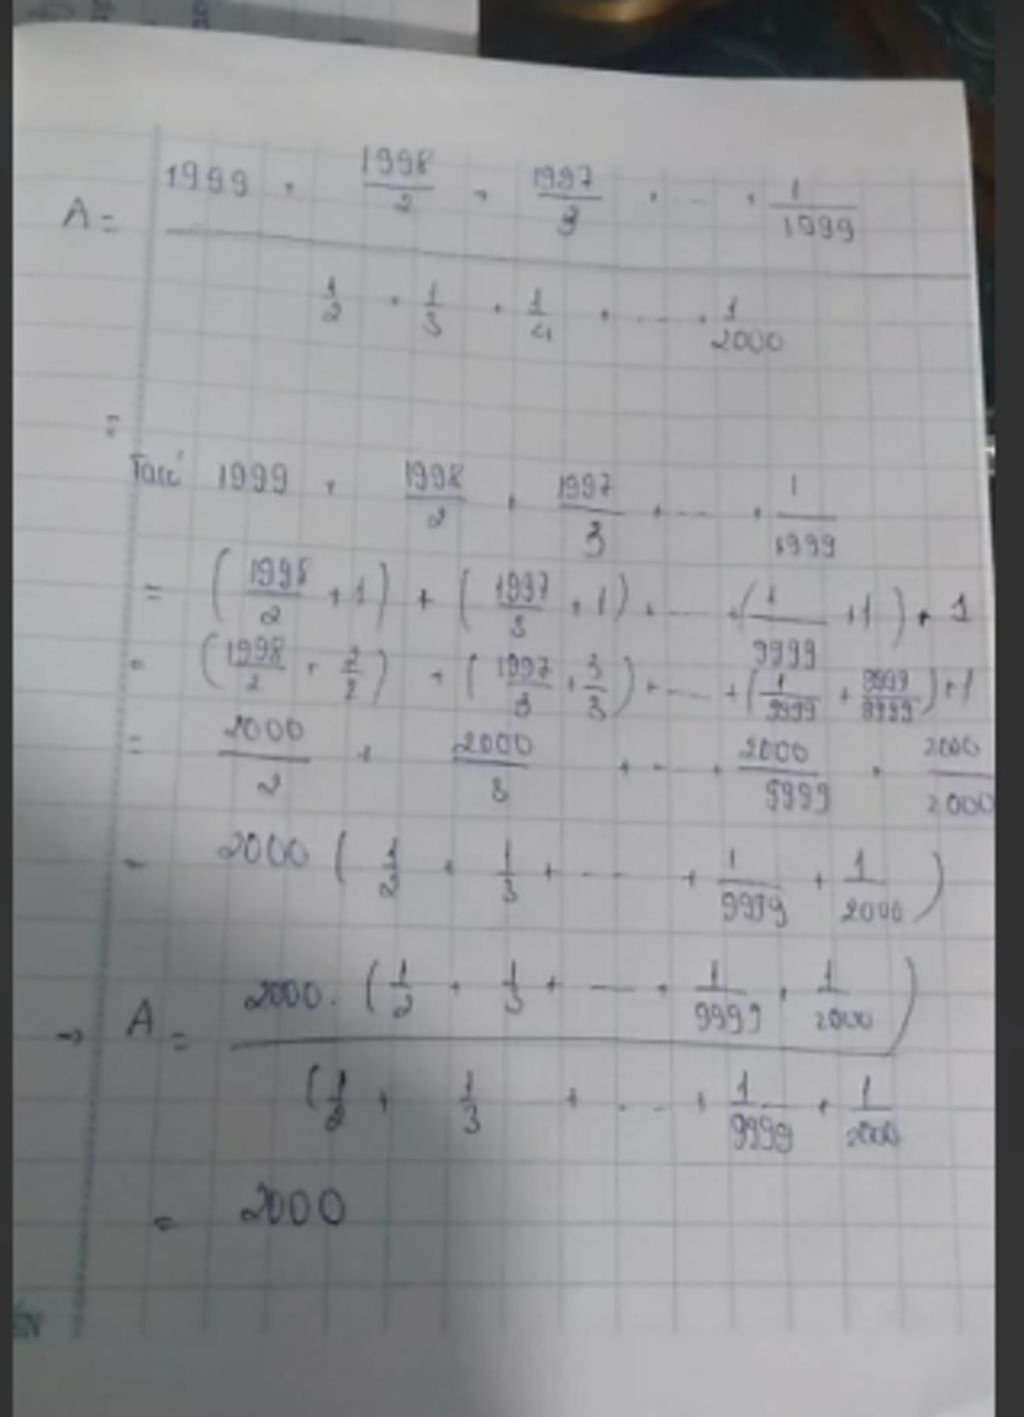 A = (1999 + 1998/2 + 1997/3 + ... + 1/1999) / (1/2 + 1/3 + 1/4 + ... + 1/2000)
=
Ta có 1999 + 1998/2 + 1997/3 + ... + 1/1999
= (1998/2 + 1) + (1997/3 + 1) + ... + (1/9999 + 1) + 1
= (1998/2 + 2/2) + (1997/3 + 3/3) + ... + (1/9999 + 9999/9999) + 1
= 2000/2 + 2000/3 + ... + 2000/9999 + 2000/2000
= 2000 (1/2 + 1/3 + ... + 1/9999 + 1/2000)
→ A = 2000 . (1/2 + 1/3 + ... + 1/9999 + 1/2000) / (1/2 + 1/3 + ... + 1/9999 + 1/2000
= 2000